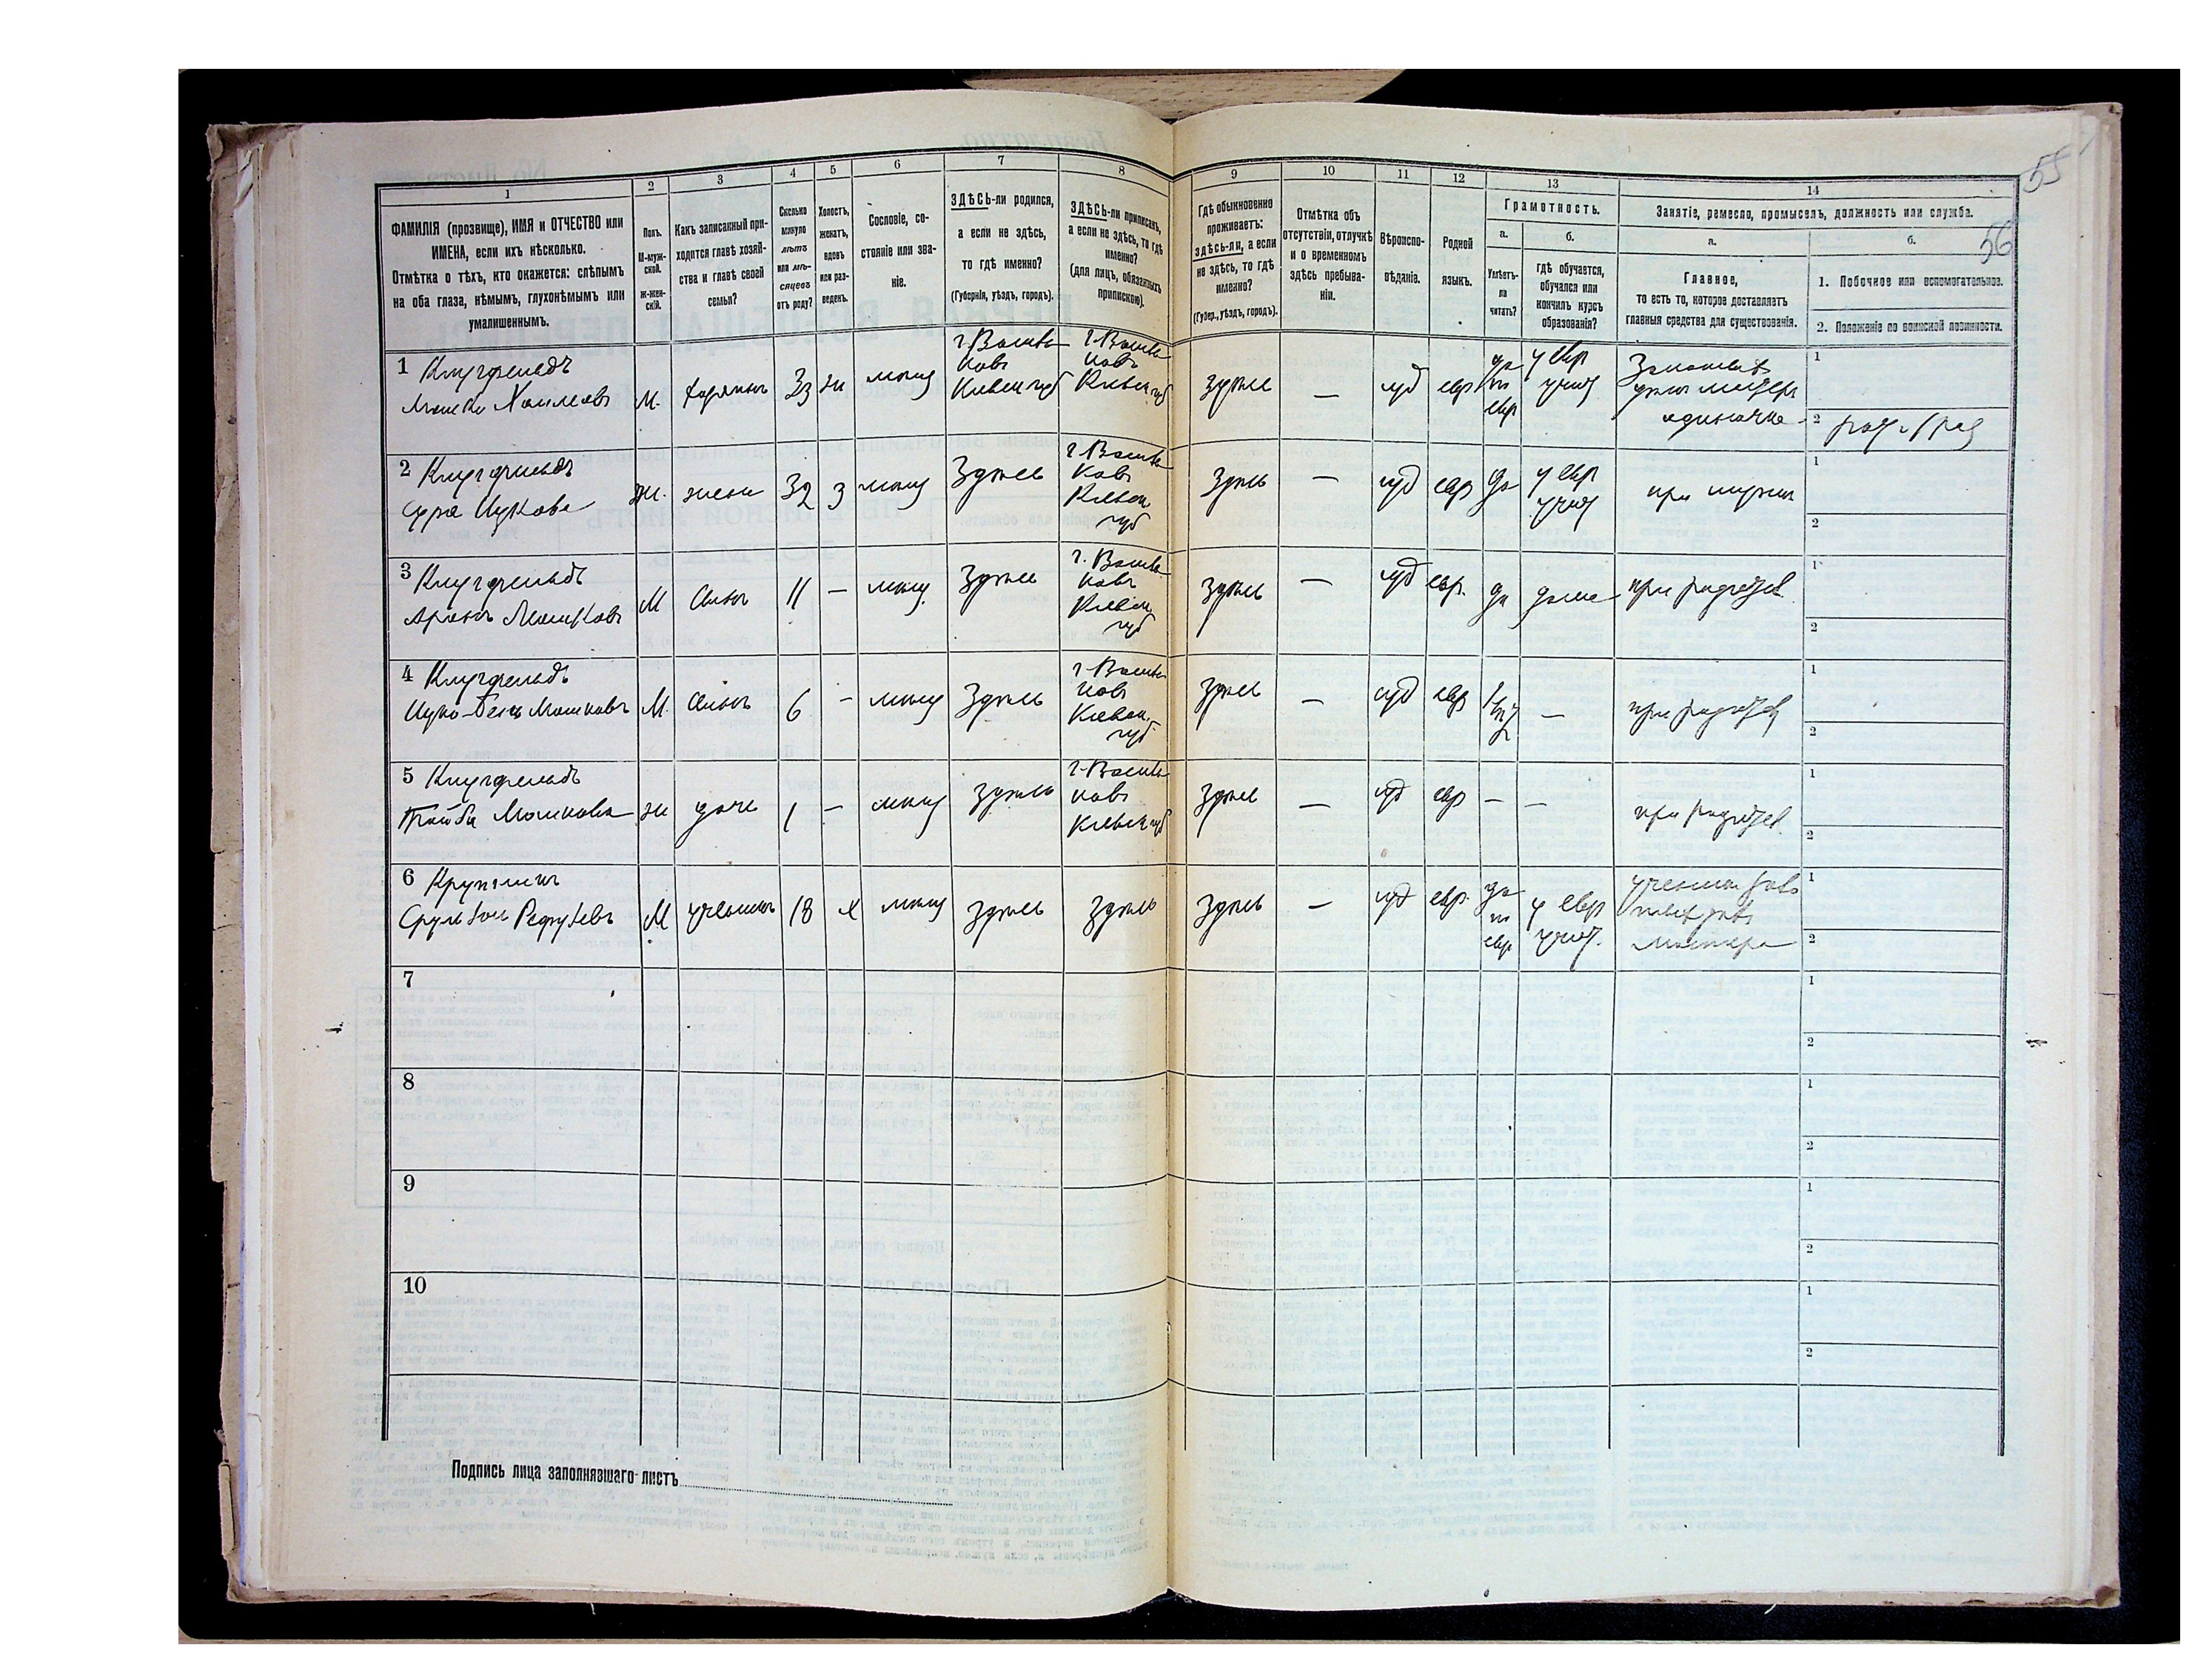 55
56
1
2
3
4
5
6
7
8
9
10
11
12
13
14
ФАМИЛІЯ (прозвище), ИМЯ и ОТЧЕСТВО или
ИМЕНА, если ихъ нѣсколько.
Отмѣтка о тѣхъ, кто окажется: слѣпымъ
на оба глаза, нѣмымъ, глухонѣмымъ или
умалишеннымъ.
Полъ.
М-муж-
ской.
Ж-жен-
скій.
Какъ записанный при-
ходится главѣ хозяй-
ства и главѣ своей
семьи?
Сколько
минуло
лѣтъ
или мѣ-
сяцевъ
отъ роду?
Холостъ,
женатъ,
вдовъ
или раз-
веденъ.
Сословіе, со-
стояніе или зва-
ніе.
ЗДѢСЬ-ли родился,
а если не здѣсь,
то гдѣ именно?
(Губернія, уѣздъ, городъ).
ЗДѢСЬ-ли приписанъ,
а если не здѣсь, то гдѣ
именно?
(для лицъ, обязанныхъ
припискою).
Гдѣ обыкновенно
проживаетъ:
здѣсь-ли, а если
не здѣсь, то гдѣ
именно?
(Губер., уѣздъ, городъ).
Отмѣтка объ
отсутствіи, отлучкѣ
и о временномъ
здѣсь пребыва-
ніи.
Вѣроиспо-
вѣданіе.
Родной
языкъ.
Грамотность.
а.
Умѣетъ-
ли
читать?
б.
гдѣ обучается,
обучался или
кончилъ курсъ
образованія?
Занятіе, ремесло, промыселъ, должность или служба.
а.
Главное,
то есть то, которое доставляетъ
главныя средства для существованія.
б.
1. Побочное или вспомогательное.
2. Положеніе по воинской повинности.
1 Клугфельдъ
Мошко Хаимовъ
М.
хозяинъ
33
ж
мѣщ
г. Василь
ковъ
Кіевск губ
г. Василь
ковъ
Кіевск губ
здѣсь
—
іуд
евр
да
по
евр
у евр
учит
одиночка
1
2
2 Клугфельдъ
Сура Ицкова
ж.
жена
32
з
мѣщ
Здѣсь
г. Василь
ковъ
Кіевск
губ
Здѣсь
—
іуд
евр
да
у евр
учит
при мужѣ
1
2
3 Клугфельдъ
Аронъ Мошковъ
М
сынъ
11
—
мѣщ
Здѣсь
г. Василь
ковъ
Кіевск
губ
здѣсь
—
іуд
евр.
да
дома
при родител
1
2
4 Клугфельдъ
Ицко-Бенъ Мошковъ
М.
сынъ
6
—
мѣщ
Здѣсь
г. Василь
ковъ
Кіевск.
губ
здѣсь
—
іуд
евр
нѣт
—
при родител
1
2
5 Клугфельдъ
Тойба Мошкова
ж
дочь
1
—
мѣщ
Здѣсь
г. Василь
ковъ
Кіевск губ
Здѣсь
—
іуд
евр
—
—
при родител.
1
2
6
М
ученикъ
18
х
мѣщ
здѣсь
здѣсь
Здѣсь
—
іуд
евр.
да
по
евр
у евр
учит.
1
2
7
1
2
8
1
2
9
1
2
10
1
2
Подпись лица заполнявшаго листъ